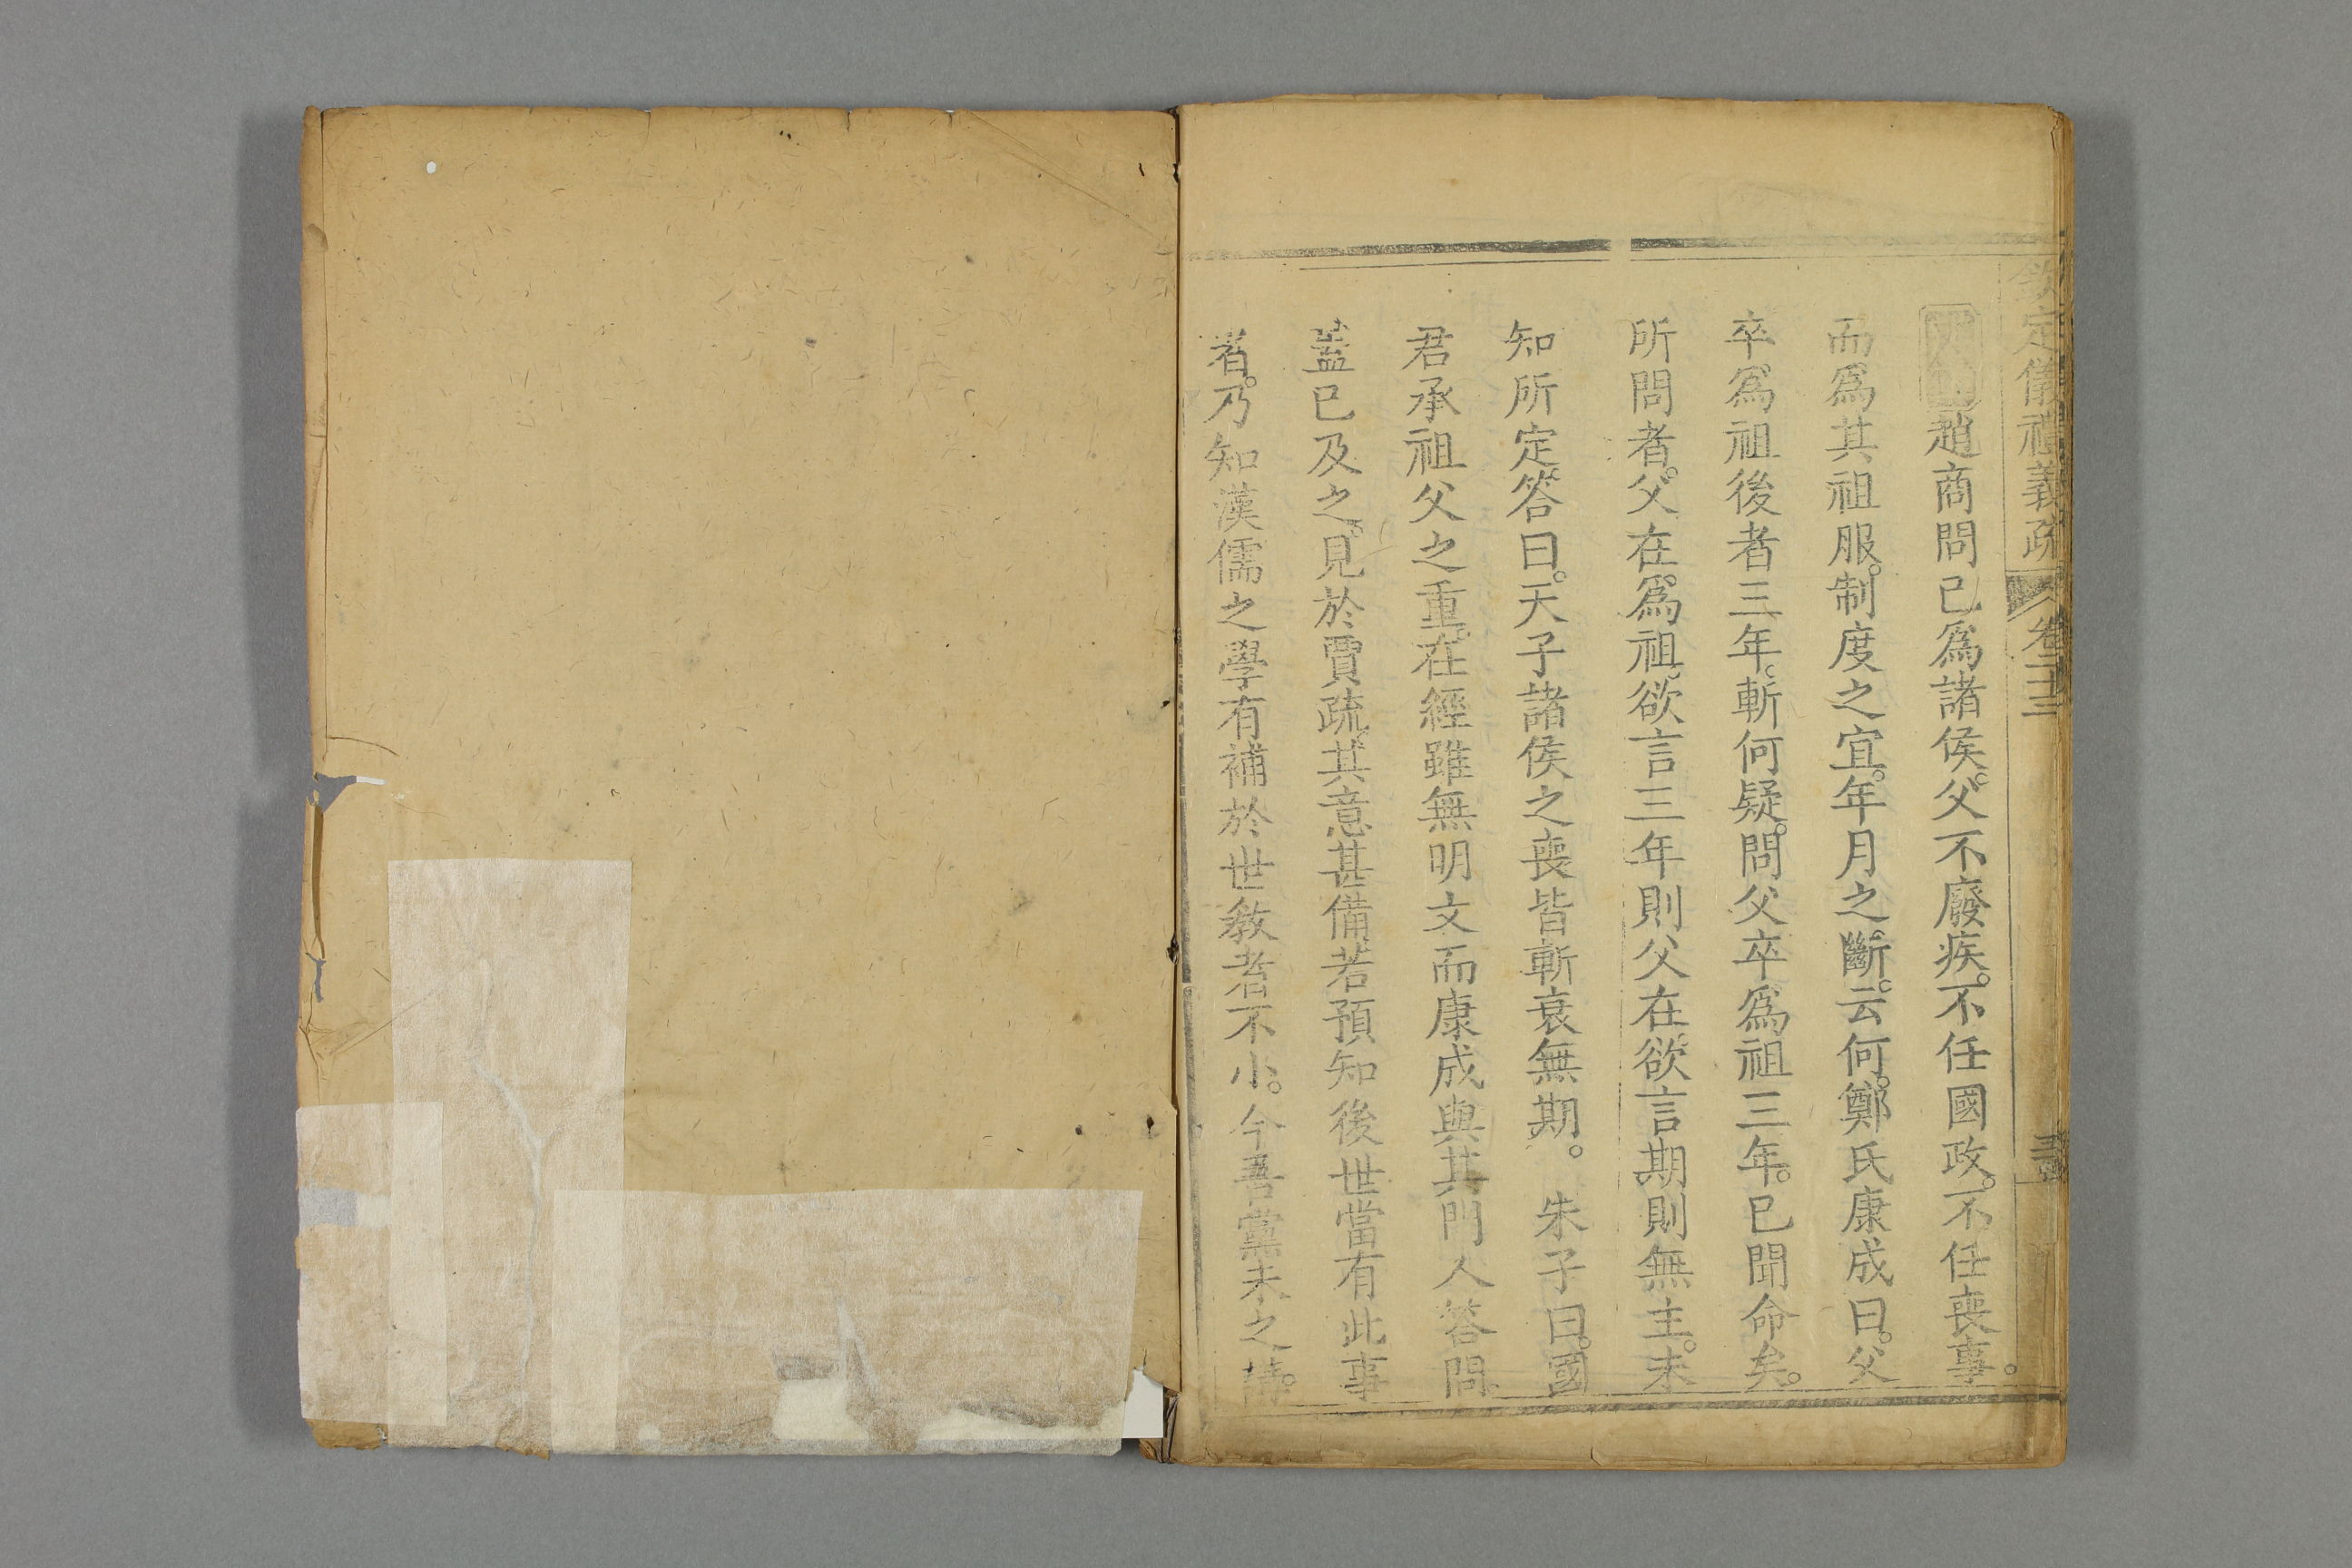 欽定儀禮義疏 卷二十三
趙商問已爲諸侯。父不廢疾。不任國政。不任喪事。
而爲其祖服。制度之宜。年月之斷。云何。鄭氏康成曰。父
卒爲祖後者三年。斬何疑。問父卒爲祖三年。已聞命矣。
所問者。父在爲祖。欲言三年則父在。欲言期則無主。未
知所定。答曰。天子諸侯之喪皆斬衰無期。 朱子曰。國
君承祖父之重。在經雖無明文而康成與其門人答問
蓋已及之。見於賈疏。其意甚備若預知後世當有此事
者。乃知漢儒之學有補於世教者不小。今吾黨未之講。